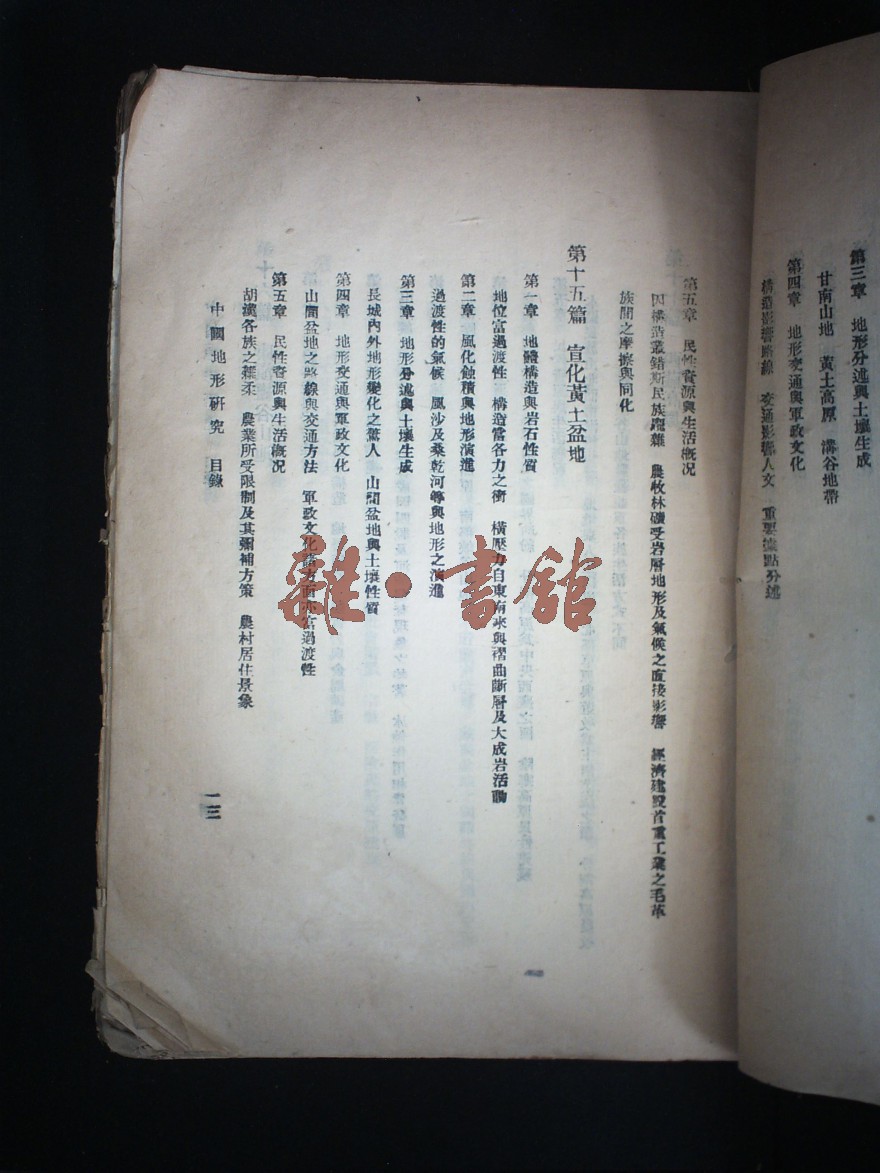 第三章　地形分述與土壤生成
甘南山地　黃土高原　溝谷地帶
第四章　地形交通與軍政文化
構造影響路線　交通影響人文　重要據點分述
第五章　民性資源與生活概況
因構造叢錯斯民族龐雜　農牧林礦受岩層地形及氣候之直接影響　經濟建設首重工礦之毛革
族間之摩擦與同化
第十五篇　宣化黃土盆地
第一章　地體構造與岩石性質
地位富過渡性　構造當各力之衝　橫壓力自東南來與褶曲斷層及大成岩活動
第二章　風化蝕積與地形演進
過渡性的氣候　風沙及桑乾河等與地形之演進
第三章　地形分述與土壤生成
長城內外地形變化之驚人　山間盆地與土壤性質
第四章　地形交通與軍政文化
山間盆地之路線與交通方法　軍政文化諸方面亦富過渡性
第五章　民性資源與生活概況
胡漢各族之糅柔　農業所受限制及其彌補方策　農村居住景象
中國地形研究　目錄
一三
雜·書館